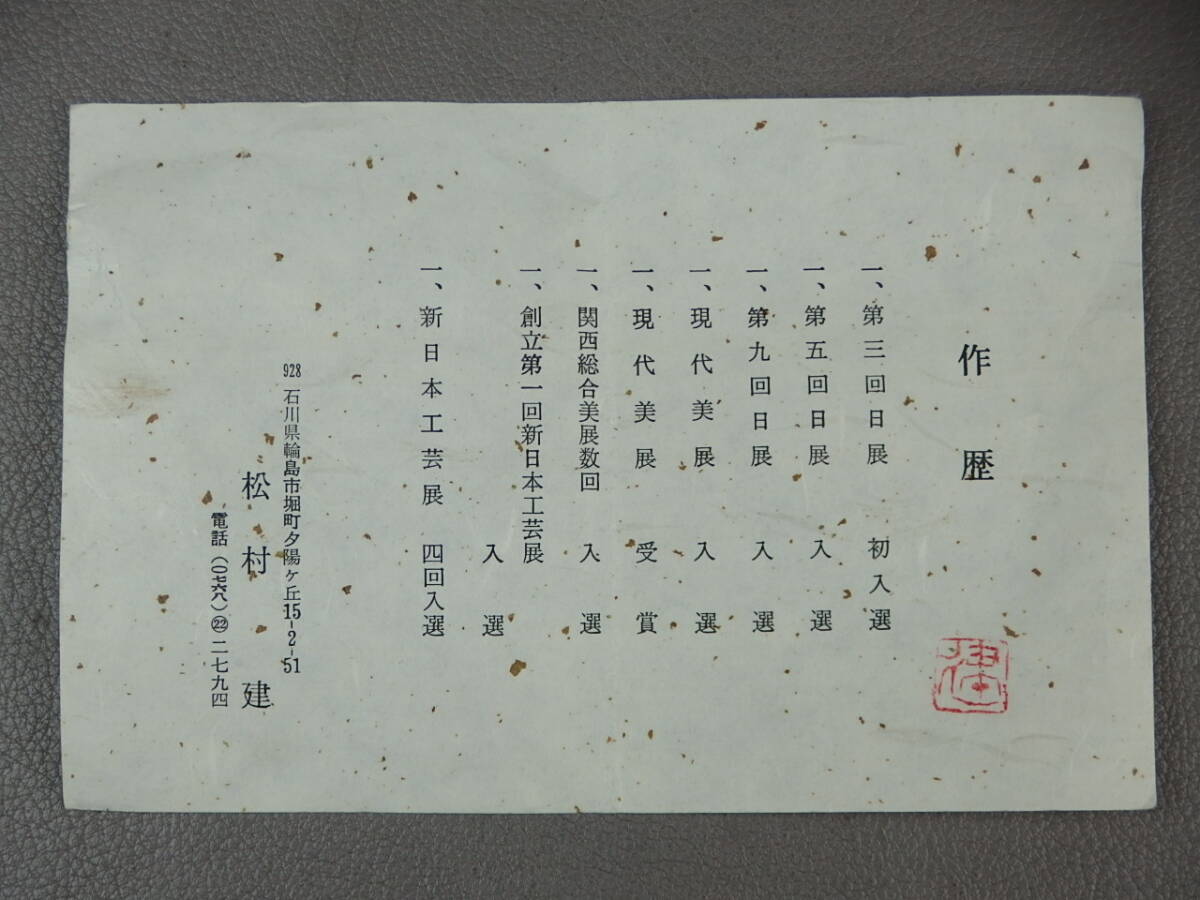 作歴
一、第三回日展 初入選
一、第五回日展 入選
一、第九回日展 入選
一、現代美展 入選
一、現代美展 受賞
一、関西総合美展数回 入選
一、創立第一回新日本工芸展
入選
一、新日本工芸展 四回入選
928 石川県輪島市堀町夕陽ヶ丘15-2-51
松村建
電話(〇七六八)㉒二七九四
建